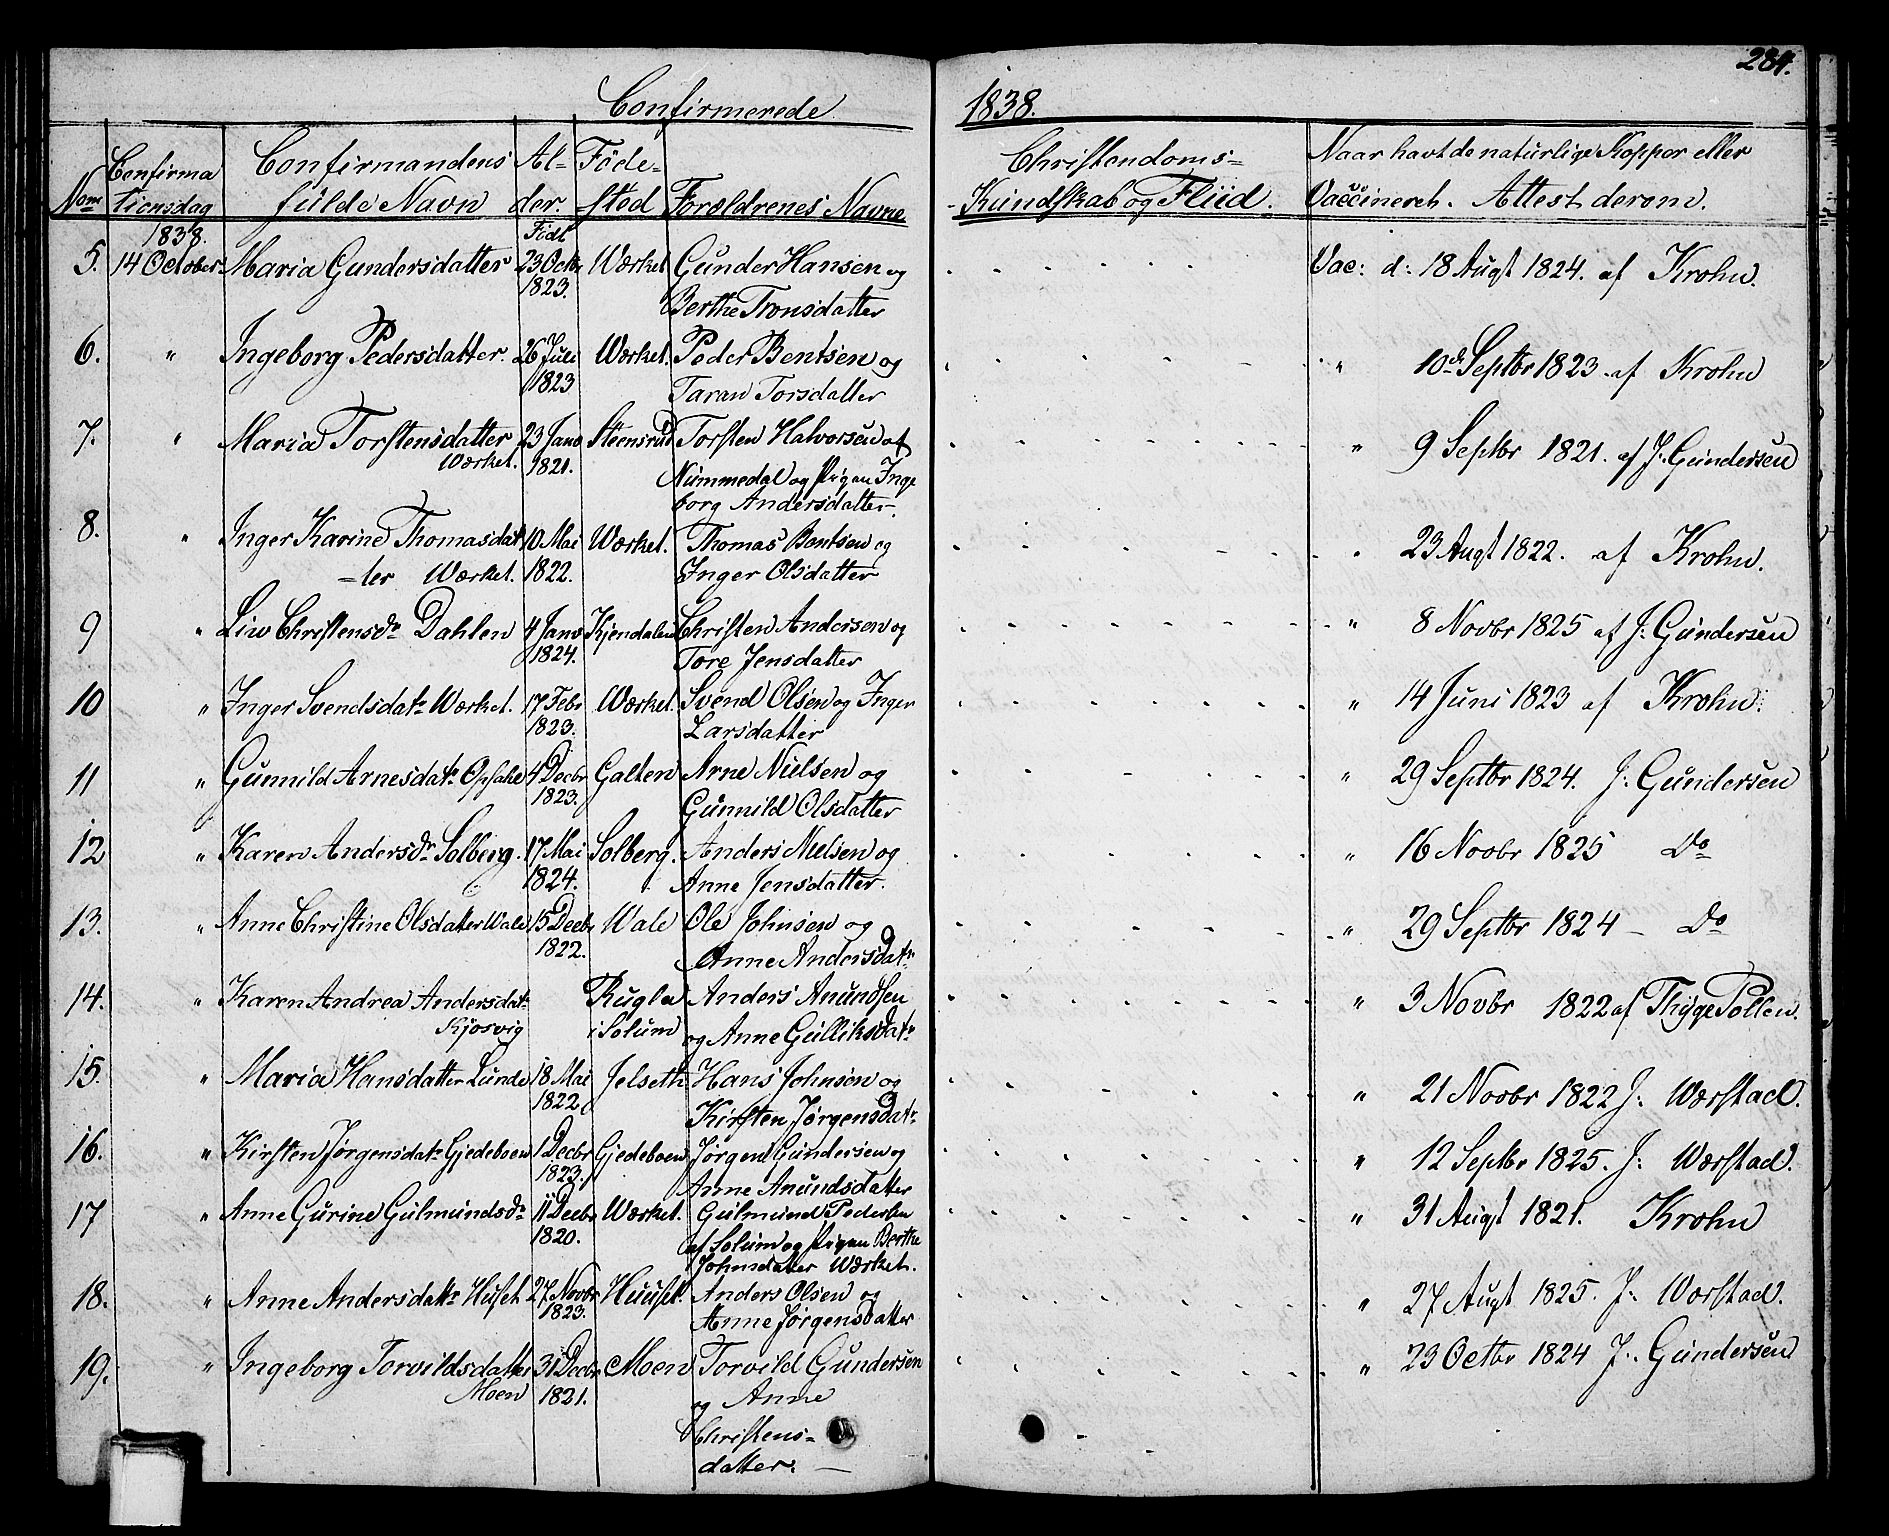 284.
Confirmerede 1838.
Nom Confirmationsdag Confirmandens fulde Navn Alder. Födested Forældrenes Navne Christendoms-Kundskab og Fliid. Naar havt de naturlige Kopper eller Vaccineret. Attest derom.
1838. Födt
5. 14 October Maria Gundersdatter 23 Octbr Wærket Gunder Hansen og Vac: d: 18 Augt 1824. af Krohn.
1823. Berthe Tronsdatter
6. " Ingeborg Pedersdatter. 26 Juli Wærket. Peder Bentsen og " 10de Septbr 1823 af Krohn
1823 Taran Torsdatter
7. " Maria Torstensdatter 23 Janv Steensrud Torsten Halvorsen af " 9 Septbr 1821. af J: Gundersen
Wærket. 1821. Nummedal og Pigen Inge
borg Andersdatter.
8. " Inger Karine Thomasdat 10 Mai Wærket. Thomas Bentsen og " 23 Augt 1822. af Krohn.
=ter Wærket. 1822. Inger Olsdatter
9 " Liw Christensdr Dahlen 4 Janv Kjendalen Christen Andersen og " 8 Novbr 1825 af J: Gundersen
1824. Tore Jensdatter
10 " Inger Svendsdatr Wærket. 17 Febr Wærket. Svend Olsen og Inger " 14 Juni 1823 af Krohn.
1823. Larsdatter
11 " Gunnild Arnesdatr Opsahl 4 Decbr Galten Arne Nielsen og " 29 Septbr 1824. J: Gundersen
1823. Gunnild Olsdatter
12 " Karen Andersdr Solberg. 17 Mai Solberg. Anders Nielsen og " 16 Novbr 1825 Do
1824. Anne Jensdatter.
13. " Anne Christine Olsdatter Wale 15 Decbr Wale Ole Johnsen og " 29 Septbr 1824 - Do
1822. Anne Andersdatr
14. " Karen Andrea Andersdatr Rugla Anders Anundsen " 3 Novbr 1822 af Thyge Pollen.
Kjosvig i Solum og Anne Gulliksdatr
15. " Maria Hansdatter Lunde 18 Mai Jelseth Hans Johnsen og " 21 Novbr 1822 J: Wærstad.
1822 Kirsten Jørgensdatr
16. " Kirsten Jørgensdatr Gjedeboen 1 Decbr Gjedeboen Jørgen Gundersen og " 12 Septbr 1825. J: Wærstad.
1823. Anne Anundsdatter
17 " Anne Gurine Gulmundsdr 11 Decbr Wærket. Gulmund Pedersen " 31 Augt 1821. Krohn
1820. af Solum og Pigen Berthe
Johnsdatter Wærket.
18. " Anne Andersdatr Huset 27 Novbr Huuset. Anders Olsen og " 27 Augt 1825. J: Worstad.
1823. Anne Jørgensdatter
19. " Ingeborg Torvildsdatter 31 Decbr Moen Torvild Gundersen " 23 Octbr 1824 J: Gundersen
Moen 1821. og Anne
Christens=
datter.